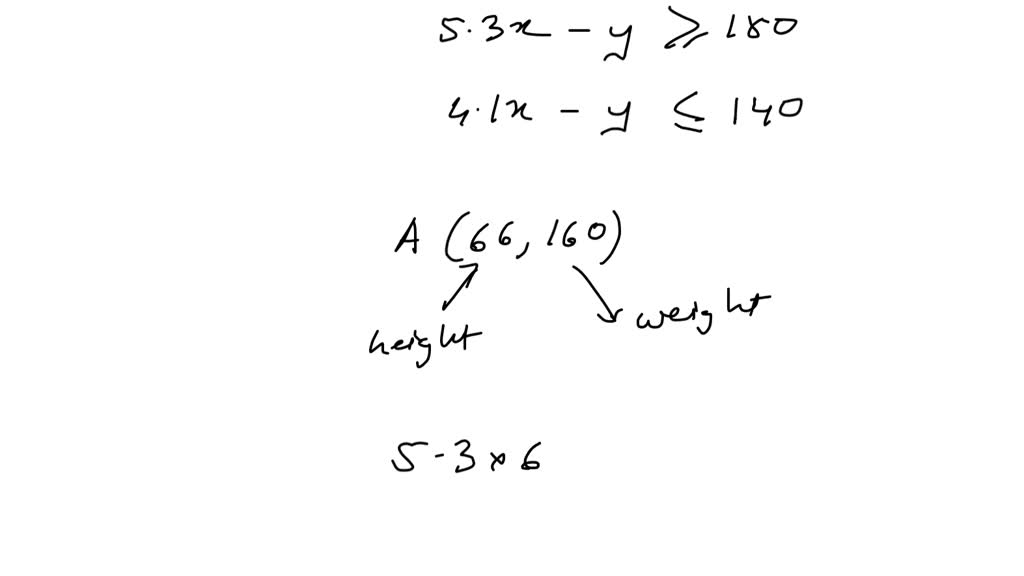 5.3x - y ≥ 180
4.1x - y ≤ 140
A (66, 160)
height weight
5.3 × 6